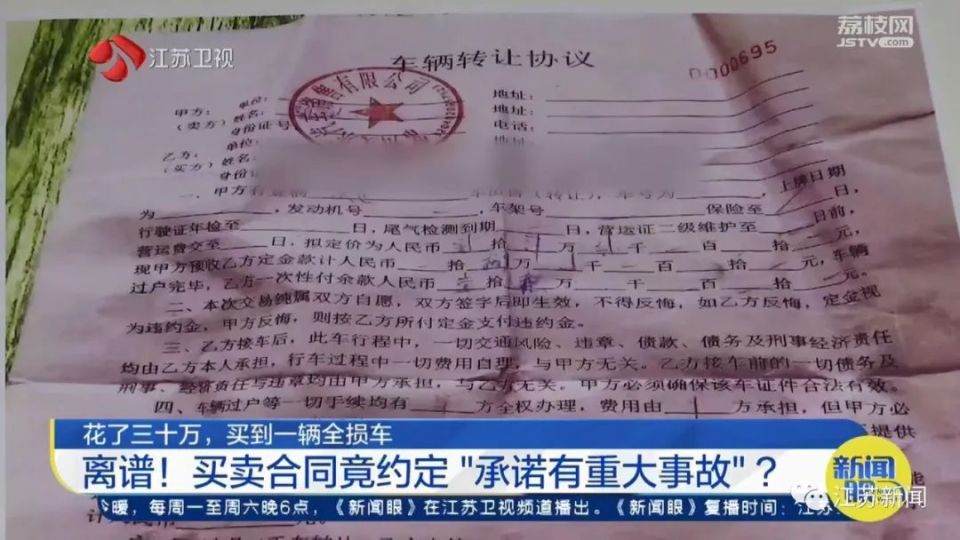 江苏卫视
荔枝网
JSTV.com
车辆转让协议
D000695
甲方：
单位：
（卖方）
身份证号
售有限公司
地址：
地址：
电话：
乙方：
单位：
（买方）
姓名：
上牌日期
为，发动机号，车架号保险至日，
行驶证年检至日，尾气检测到期日，营运证二级维护至日前，
营运费交至日，拟定价为人民币拾万千百拾元，
现甲方预收乙方定金款计人民币拾万千百拾元，车辆
过户完毕，乙方一次性付余款人民币拾千百拾元。
二、本次交易纯属双方自愿，双方签字后即生效，不得反悔，如乙方反悔，定金视
为违约金，甲方反悔，则按乙方所付定金支付违约金。
三、乙方接车后，此车行程中，一切交通风险、违章、债款、债务及刑事经济责任
均由乙方本人承担，行车过程中一切费用自理，与甲方无关。乙方接车前的一切债务及
刑事、经济责任与违章均由甲方承担，与乙方无关。甲方必须确保该车证件合法有效。
四、车辆过户等一切手续均有方全权办理，费用由方承担，但甲方必
提供
花了三十万，买到一辆全损车
离谱！买卖合同竟约定"承诺有重大事故"？
新闻眼
江苏新闻
冷暖，每周一至周六晚6点，《新闻眼》在江苏卫视频道播出。《新闻眼》复播时间：江苏